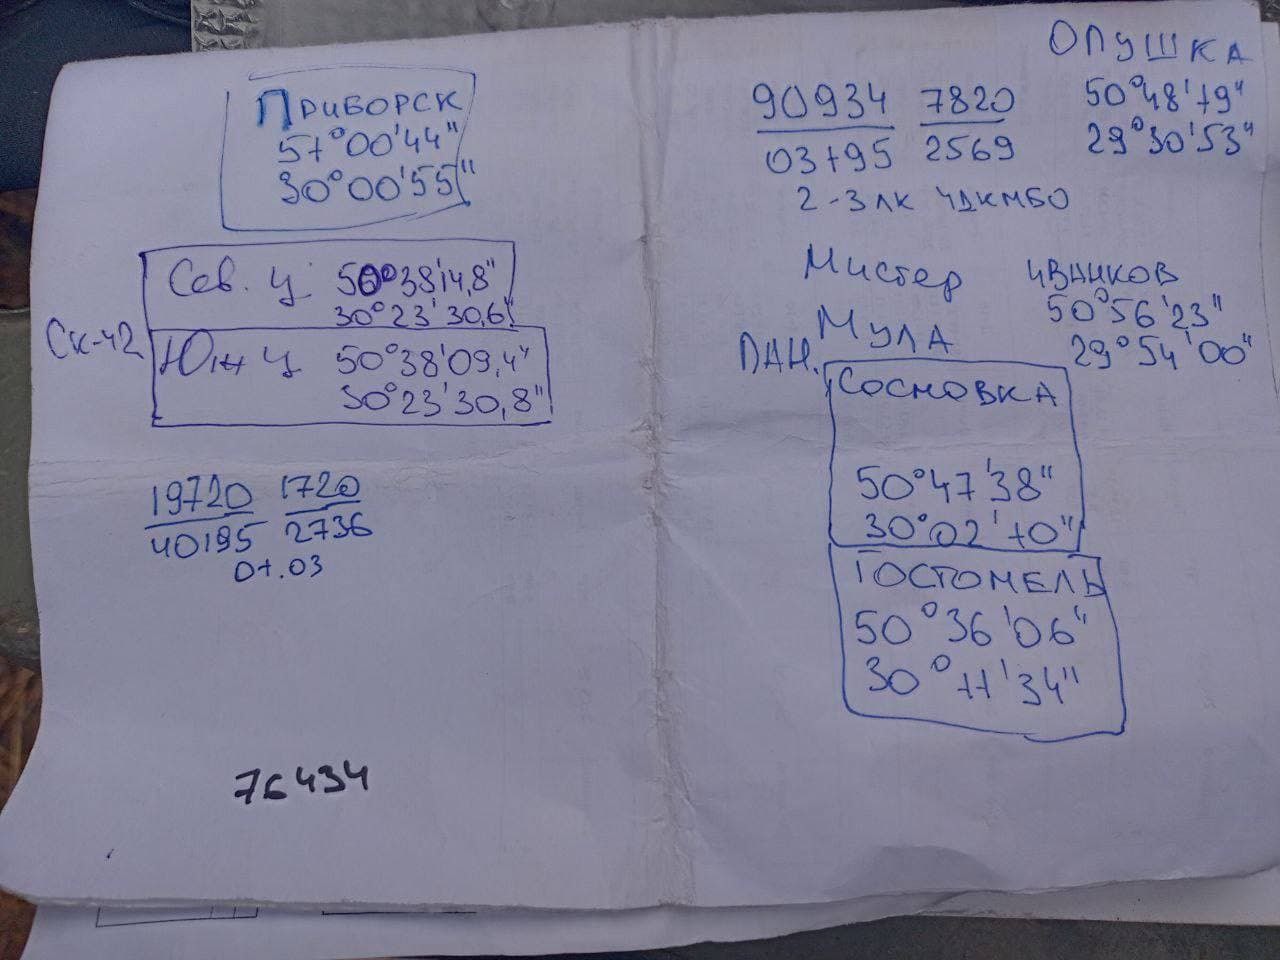 ПРИБОРСК
51°00'44"
30°00'55"
Сев. Ц. 50°38'14,8"
30°23'30,6"
Ск-42
Южн Ц 50°38'09,4"
30°23'30,8"
19720 1720
40195 2736
01.03
76434
ОПУШКА
50°48'19"
29°30'53"
90934 7820
03195 2569
2-3 ЛК ЧДКМБО
Мистер
МУЛА
ИВАНКОВ
50°56'23"
29°54'00"
ДАН.
СОСНОВКА
50°47'38"
30°02'10"
ГОСТОМЕЛЬ
50°36'06"
30°11'34"